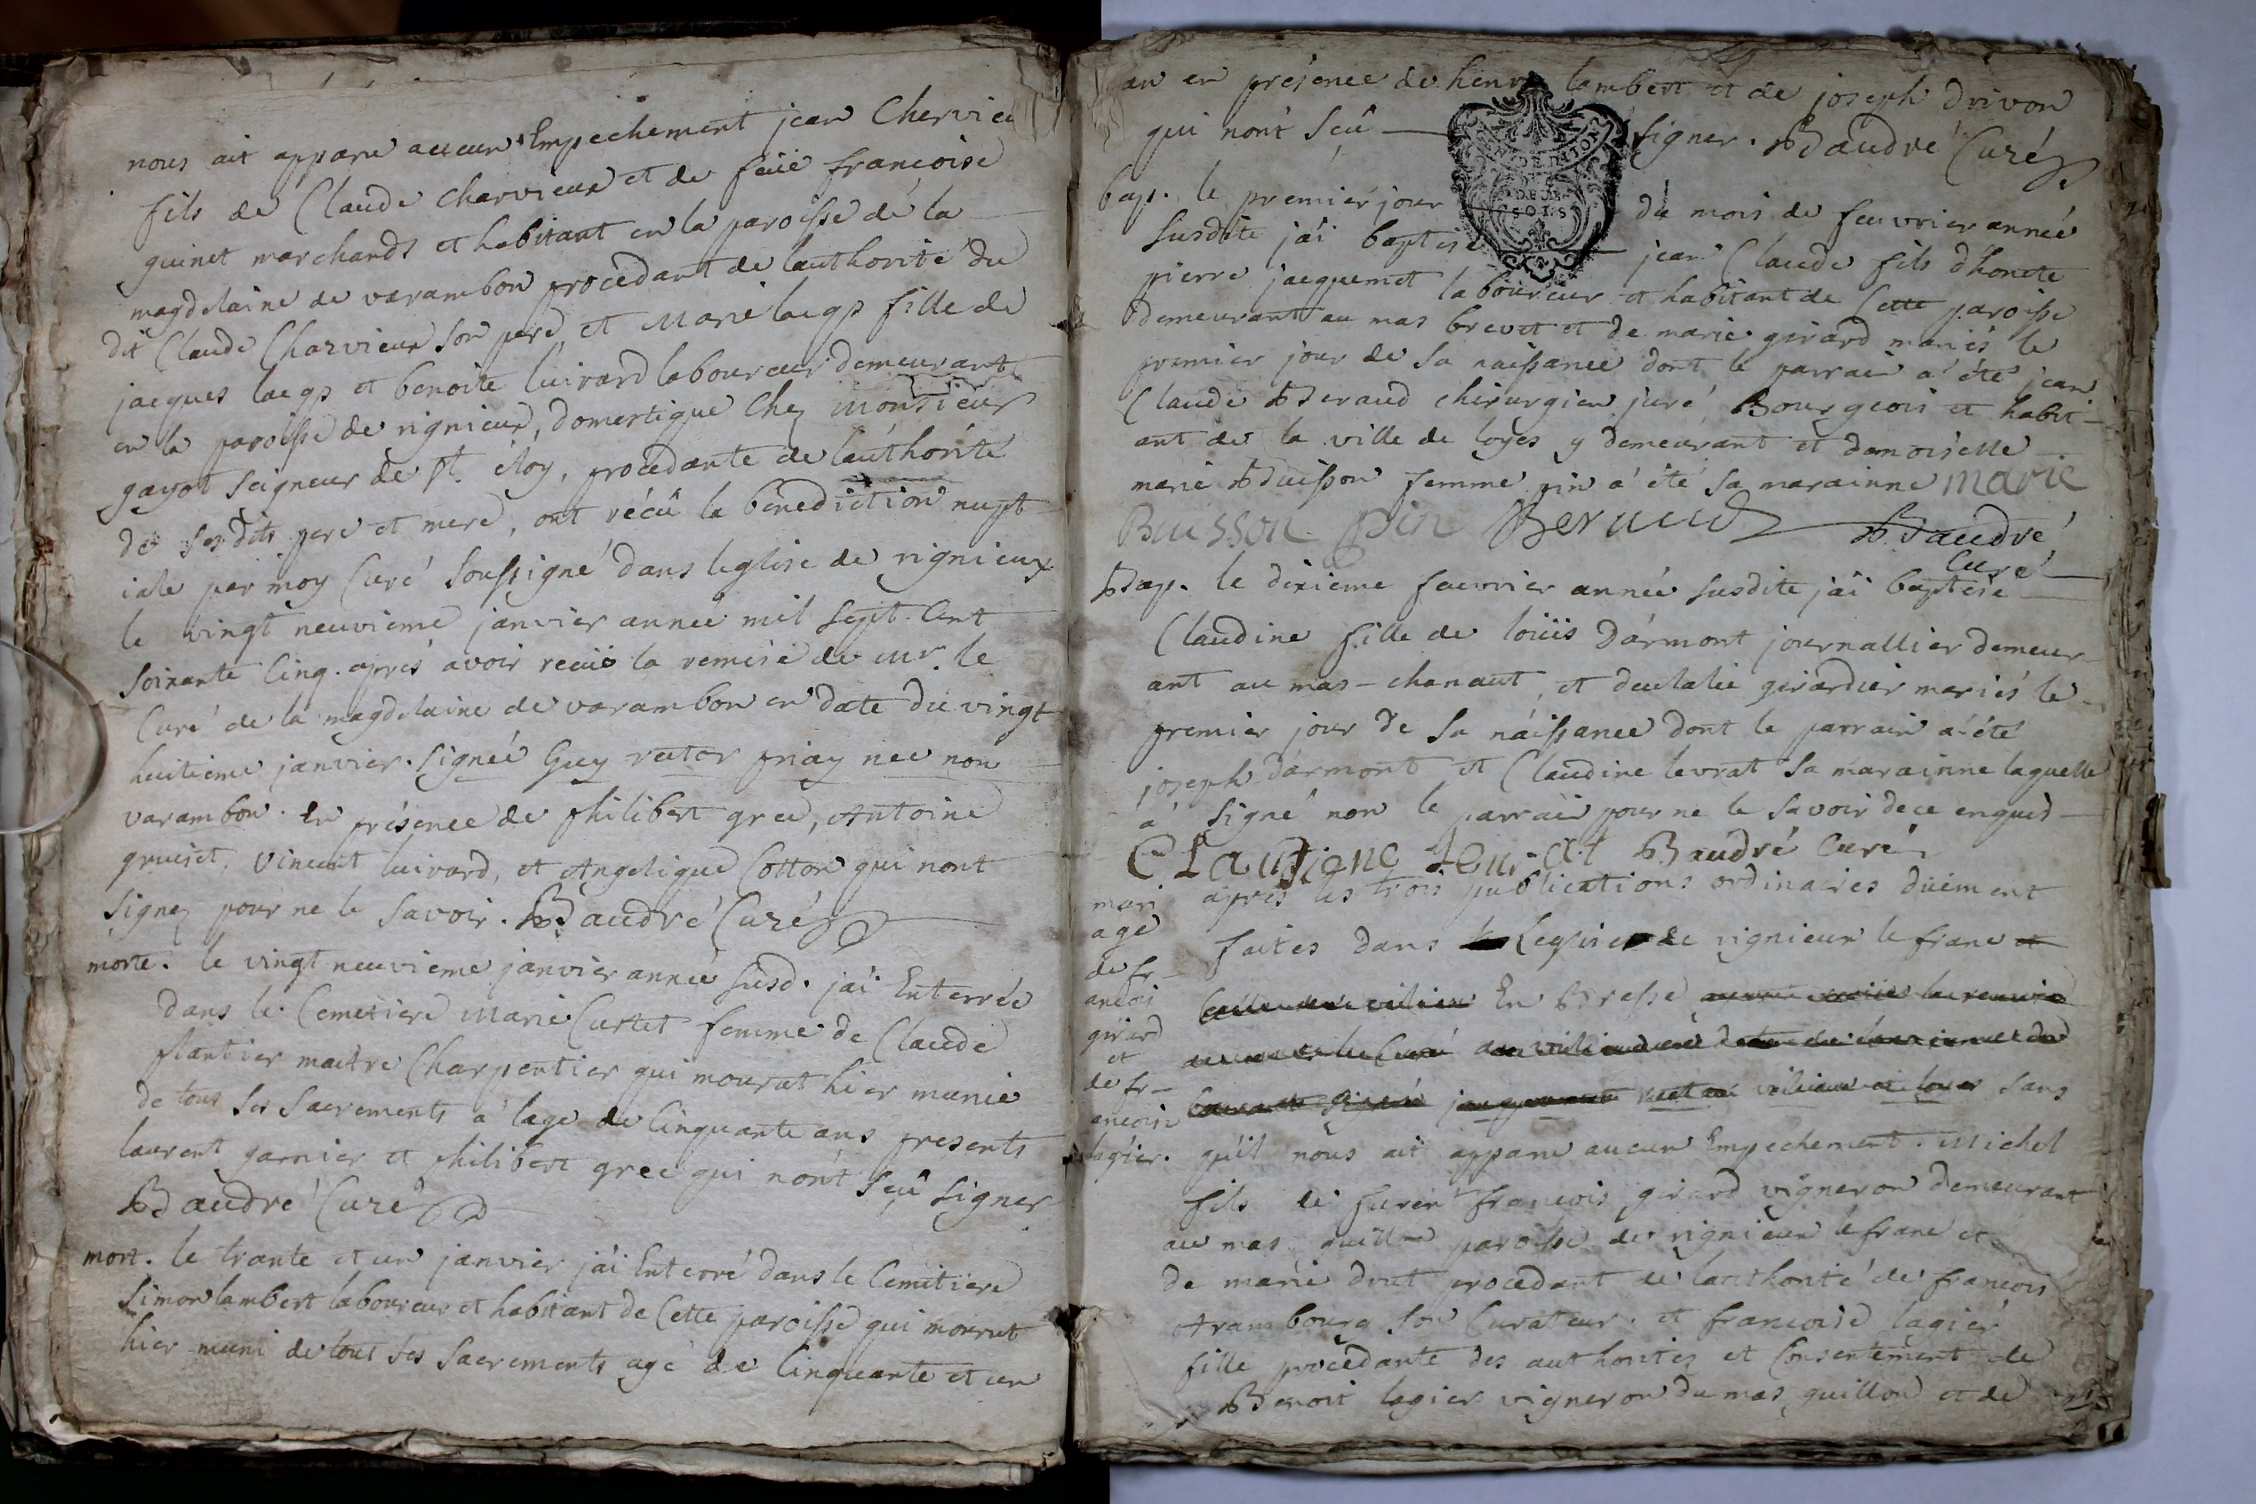 nous ait apparu aucun Empechement jean Chervieu
fils de Claude Charvieux et de feüe francoise
guinet marchands et habitant en la paroisse de la
magdelaine de varambon procedant de lauthorité du
dit Claude Charvieux son pere, et Marie loeqs fille de
jacques loeqs et benoite luivard laboureur demeurant
en la paroisse de rignieux, domestique Chez Monsieur
gayot seigneur de st. éloy, procedante de lauthorité
de ses dits pere et mere, ont récû la bénédiction nupt
iale par moy Curé soussigné dans leglise de rignieux
le vingt neuvieme janvier année mil sept Cent
soixante Cinq. aprés avoir recüe la remise de mr. le
Curé de la magdelaine de varambon en date du vingt
huitieme janvier. signée Guy rector priay nec non
varambon. En présence de philibert greè, Antoine
gruiset, vincent luivard, et Angelique Cotton qui nont
signez pour ne le savoir. Baudré Curé
morte. le vingt neuvieme janvier année susd. j'ai Enterrée
dans le Cemetiere Marie Curtet femme de Claude
plantier maitre Charpentier qui mourut hier munie
de tous ses sacrements a lage de Cinquante ans presents
laurent garnier et philibert gree qui nont sçu signer
Baudré Curé
mort. le trante et un janvier j'ai Enterré dans le Cemetiere
Simon lambert laboureur et habitant de Cette paroisse qui mourut
hier muni de tout ses sacrements agé de Cinquante et un
an en présence de henry lambert et de joseph drivon
qui nont seû signer. Baudré Curé
DEUX
SOLS
bap. le premier jour du mois de feuvrier année
susdite j'ai baptisé jean Claude fils d'honete
pierre jacquemet laboureur et habitant de Cette paroisse
demeurant au mas brevet et de marie girard mariés le
premier jour de sa naissance dont le parrain a été jean
Claude Beraud chirurgien juré Bourgeois et habit-
ant de la ville de loyes y demeurant et damoiselle
marie Buisson femme pin a été sa marainne marie
Buisson pin Beraud Baudré
Curé
Bap. le dixieme feuvrier année susdite j'ai baptisé
Claudine fille de loüis Darmont journallier demeur-
ant au mas-chanaut, et deulalie girardier mariés le
premier jour de sa naissance dont le parrain a été
joseph darmont et Claudine levrat sa marainne laquelle
a signé non le parrain pour ne le savoir de ce enquis
Claudine Levrat Baudré Curé
mari
age
de fr-
ancoi
girard
et
de fr-
ancoise
lagier.
aprés les trois publications ordinaires düement
faites dans Leglise de rignieux le franc et
En Bresse
sans
qu'il nous ait apparu aucun Empechement. Michel
fils de françois girard vigneron demeurant
au mas paroisse de rignieux le franc et
de marie drut procedant de lauthorité de francois
Arambourg son Curateur. et francoise lagier
fille procedante des authorites et Consentement de
Benoit lagier vigneron du mas guillon et de